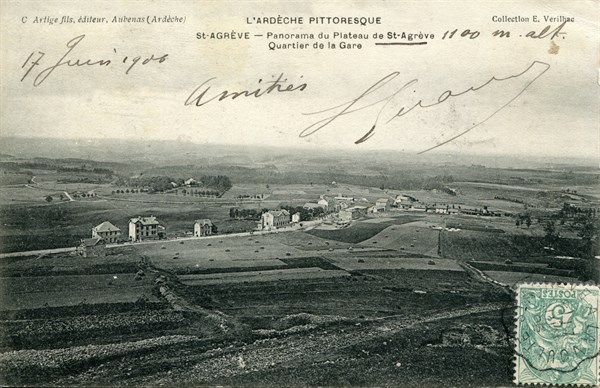 C Artige fils, éditeur, Aubenas (Ardèche)
L'ARDÈCHE PITTORESQUE
Collection E. Verilhac
ST-AGRÈVE — Panorama du Plateau de St-Agrève 1100 m. alt.
Quartier de la Gare
17 Juin 1906
Amitiés
POSTES
5